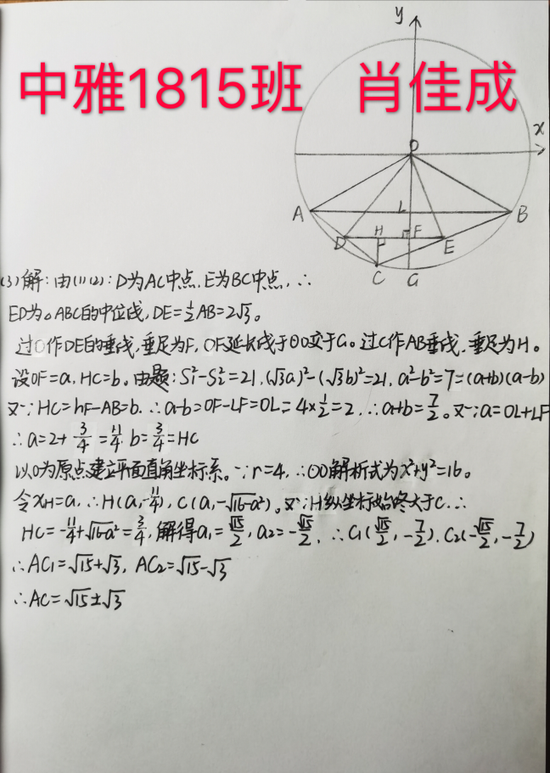 中雅1815班 肖佳成
y
x
O
A
L
B
D
H
F
E
C
G
(3)解:由(1)(2):D为AC中点,E为BC中点,∴
ED为△ABC的中位线,DE=½AB=2√3。
过O作DE的垂线,垂足为F,OF延长线于⊙O交于G。过C作AB垂线,垂足为H。
设OF=a,HC=b。由题:S₁²-S₂²=21,(√3a)²-(√3b)²=21,a²-b²=7=(a+b)(a-b)
又∵HC=hF-AB=b.∴a-b=OF-LF=OL=4×½=2.∴a+b=7/2。又∵a=OL+LF
∴a=2+3/4=11/4 b=3/4=HC
以O为原点建立平面直角坐标系。∵r=4,∴⊙O解析式为x²+y²=16。
令xH=a,∴H(a,-11/4),C(a,-√16-a²)。又∵H纵坐标始终大于C.∴
HC=-11/4+√16-a²=3/4,解得a₁=√15/2,a₂=-√15/2,∴C₁(√15/2,-7/2).C₂(-√15/2,-7/2)
∴AC₁=√15+√3,AC₂=√15-√3
∴AC=√15±√3